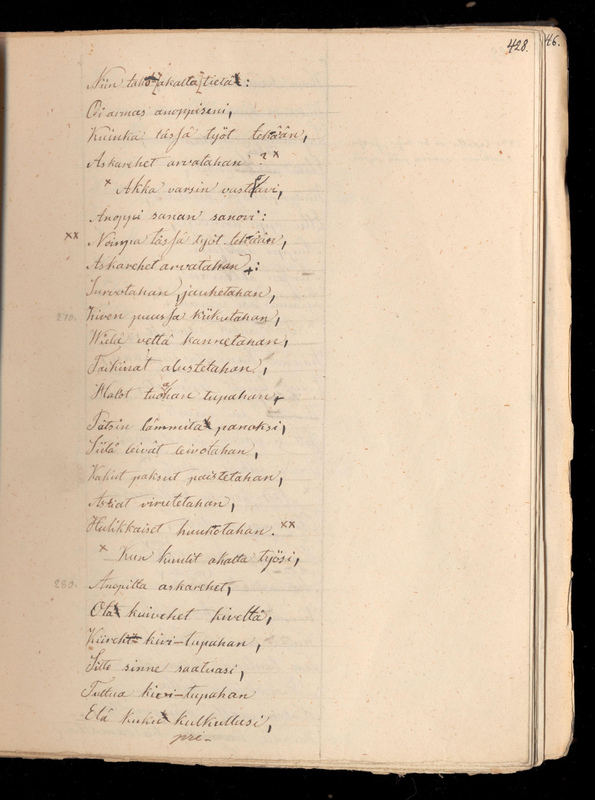 428.
46.
Niin tahot akalta tietä :
Oi armas anoppiseni,
Kuinka tässä työt tehään,
Askarehet arvatahan ? x
x Akka varsin vastoavi,
Anoppi sanan sanovi :
xx Noinpa tässä työt tehään,
Askarehet arvatahan :
Survotahan, jauhetahan,
270. Kiven puussa kiikutahan,
Wielä vettä kannetahan,
Taikinat alustetahan,
Halot tuoahan tupahan,
Pätsin lämmitä panoksi,
Siitä leivät leivotahan,
Kakut paksut paistetahan,
Astiat virutetahan,
Hulikkaiset huuhotahan. xx
x Kun kuulit akalta työsi,
280. Anopilta askarehet,
Ota kuivehet kiveltä,
Kiireht kivi-tupahan,
Sitte sinne saatuasi,
Tultua kivi-tupahan
Elä kuku kulkullasi,